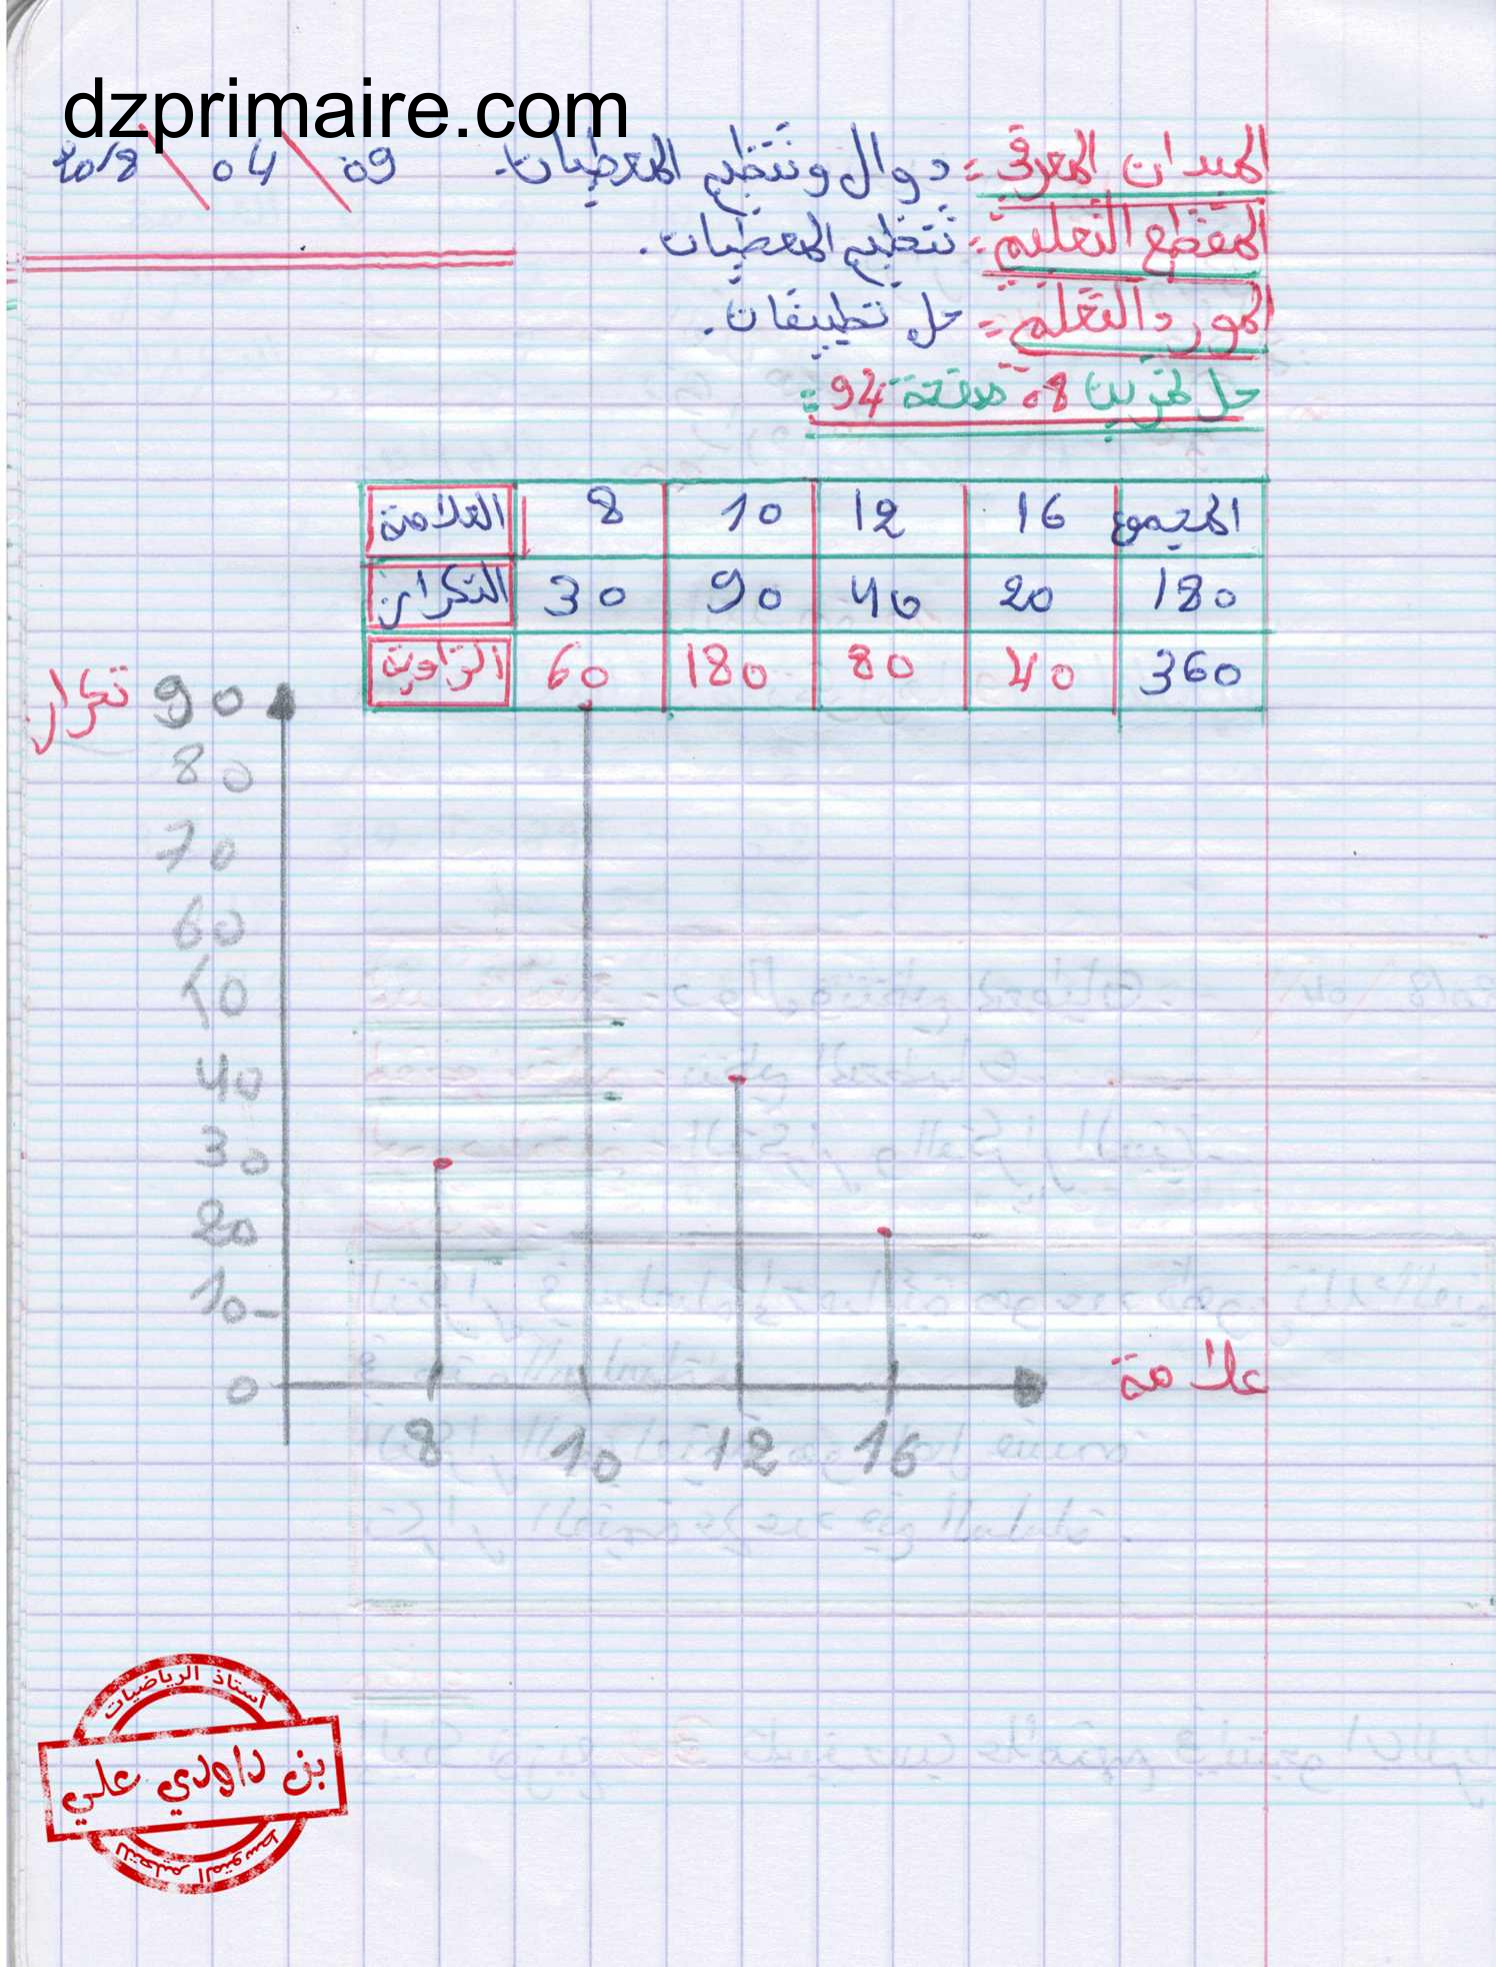 dzprimaire.com
الميدان المعرفي: دوال وتنظيم المعطيات. 09 \ 04 \ 2018
المقطع التعليمي: تنظيم المعطيات.
المورد التعلمي: حل تطبيقات.
حل تمرين 08 صفحة 94:
العلامة 8 10 12 16 المجموع
التكرار 30 90 40 20 180
الزاوية 60 180 80 40 360
تكرار
90
80
70
60
50
40
30
20
10
0
8 10 12 16
علامة
أستاذ الرياضيات
بن داودي علي
للتعليم المتوسط